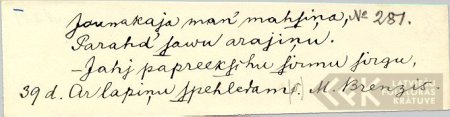 Jounakaja man' mahsiņa, № 281.
Parahd' sawu arajiņu.
— Jahj papreekschu sirmu sirgu,
39 d. Ar lapiņu spehledams. M. Brenzis.
LATVIEŠU
FOLKLORAS
KRĀTUVE